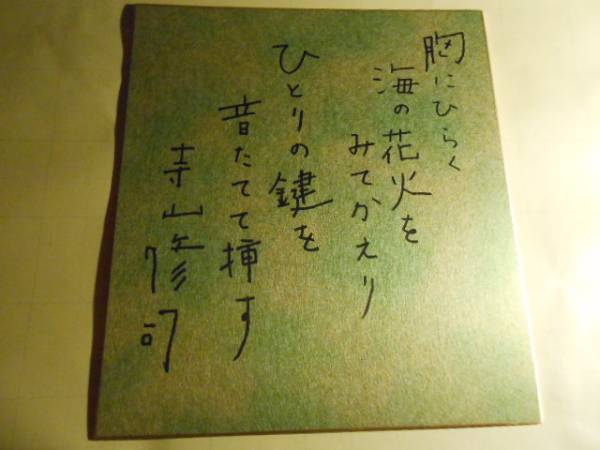 胸にひらく
海の花火を
みてかえり
ひとりの鍵を
音たてて挿す
寺山修司